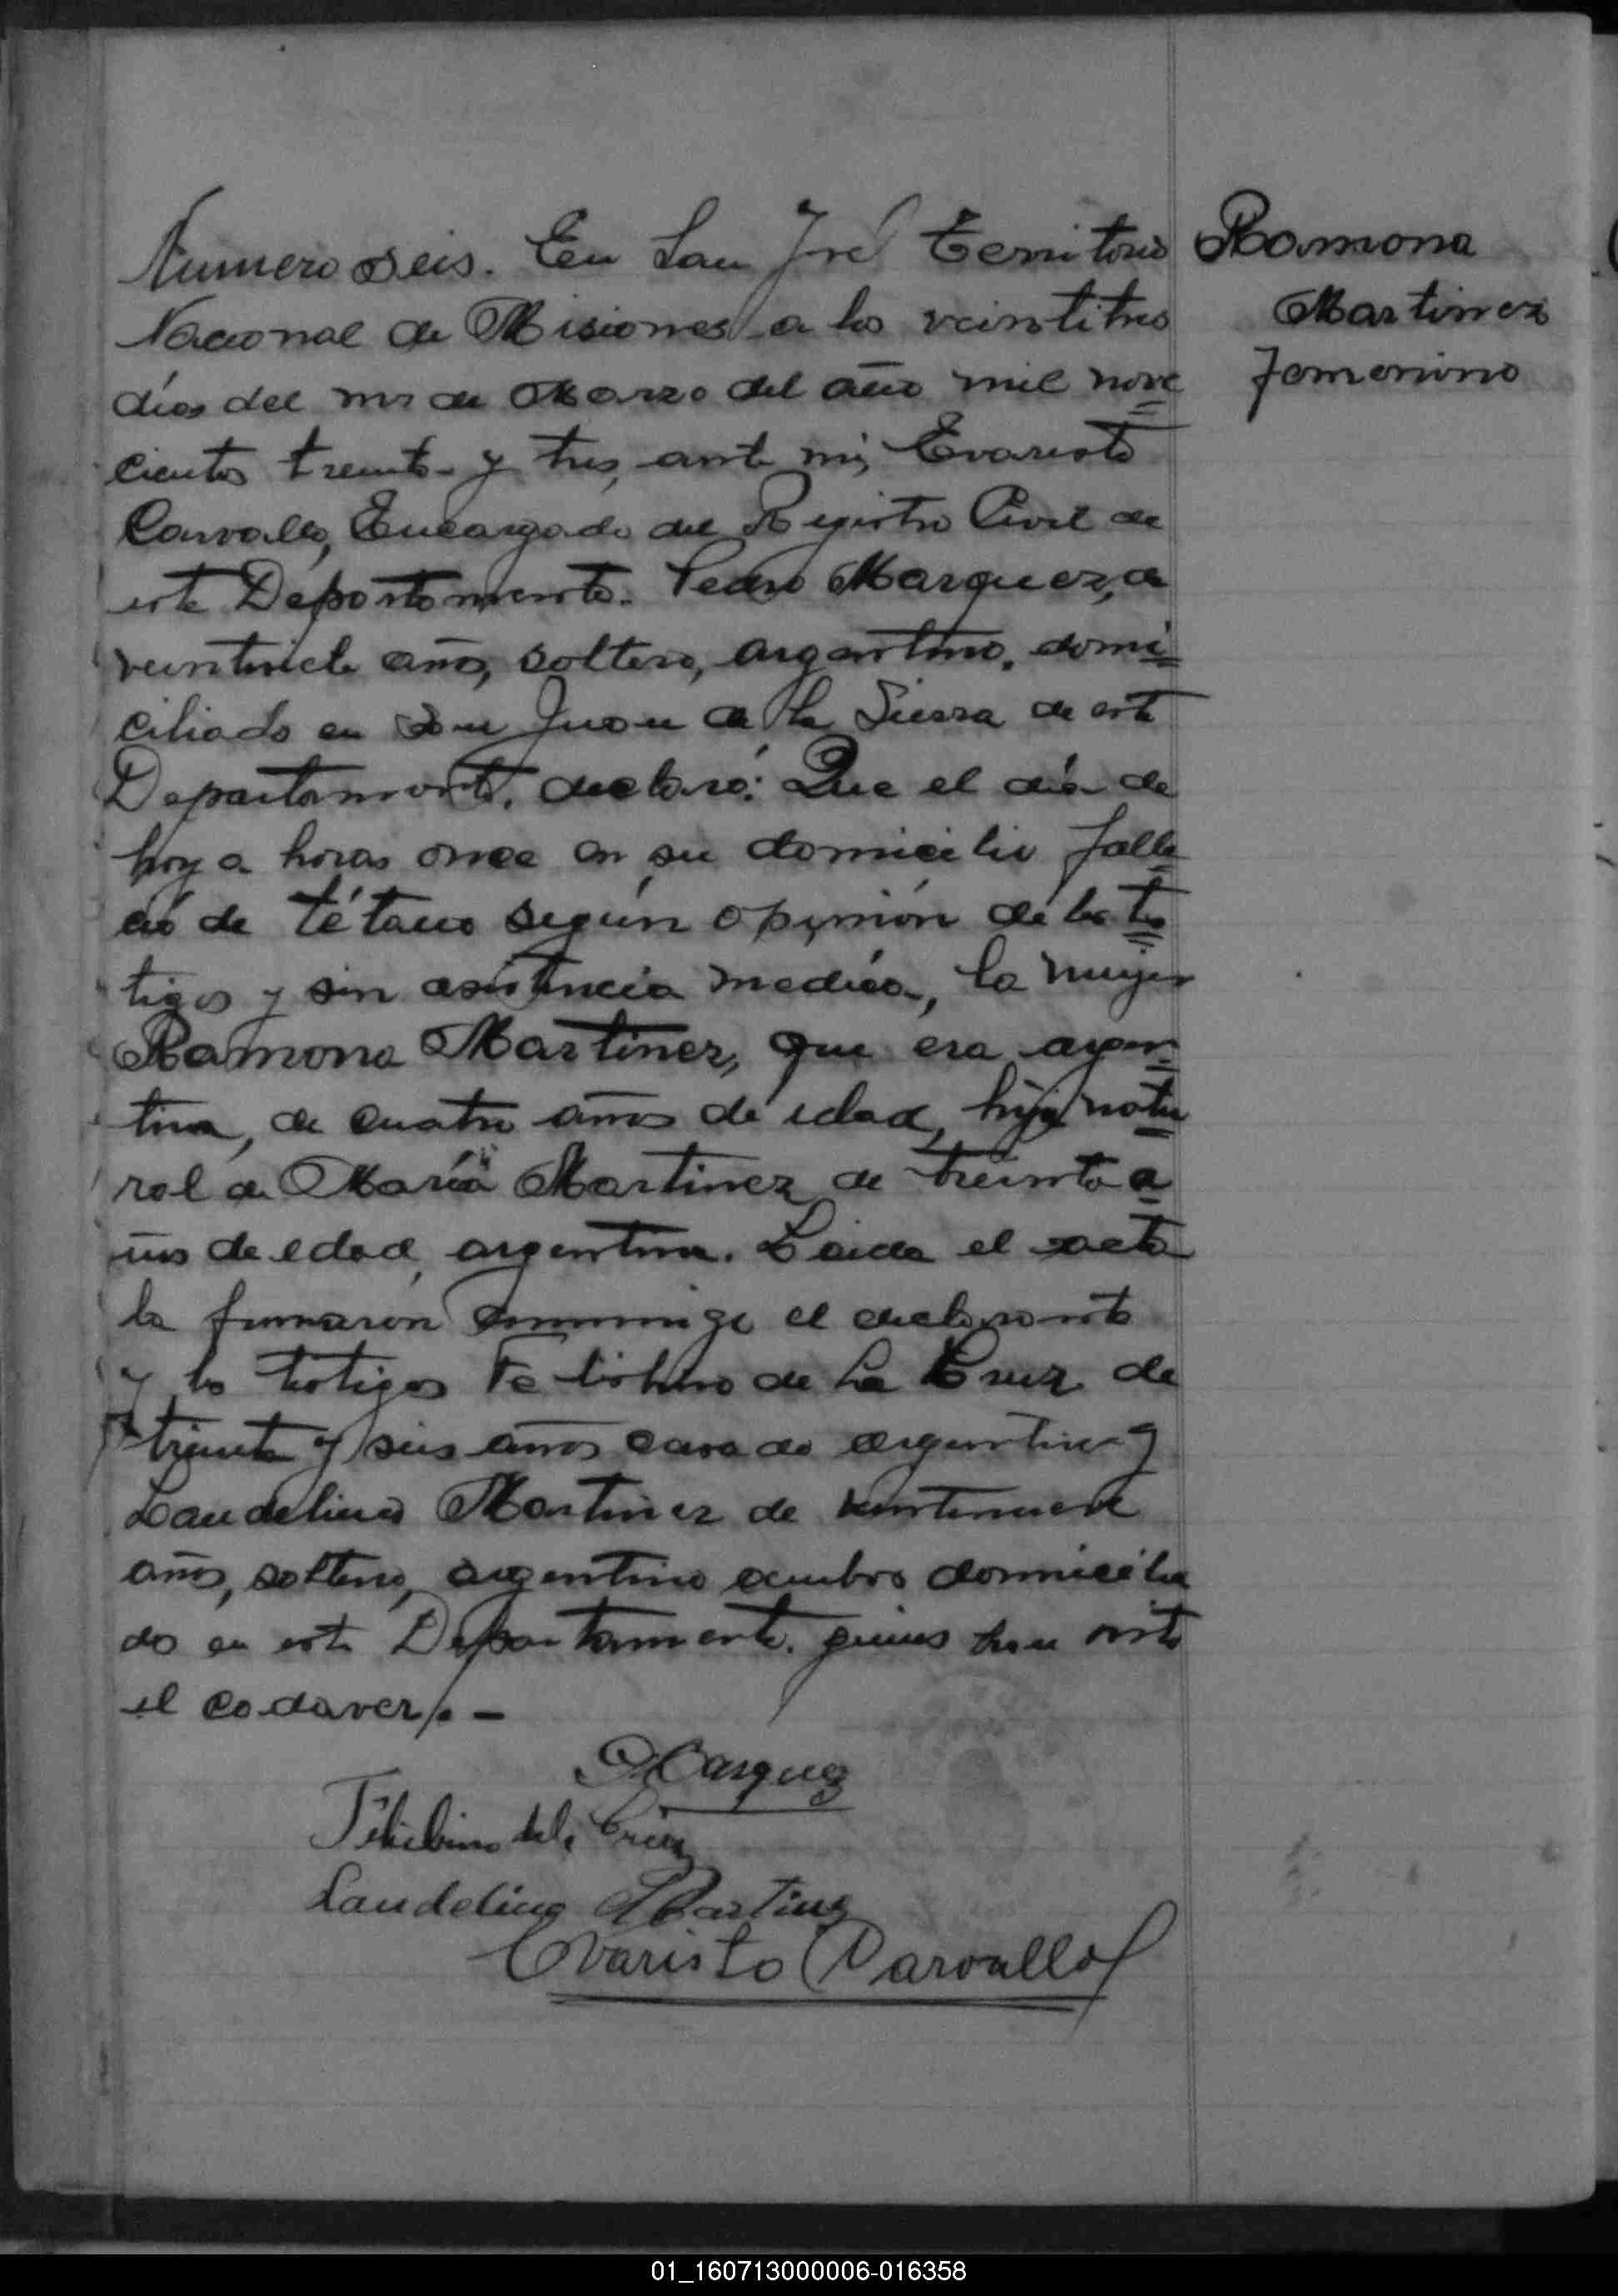 Numero seis. En San José Territorio
Nacional de Misiones a los veintitres
días del mes de Marzo del año mil nove=
cientos treinta y tres, ante mi, Evaristo
Carvallo, Encargado del Registro Civil de
este Departamento. Pedro Marquez, de
veintisiete años, soltero, argentino, domi=
ciliado en San Juan de la Sierra de este
Departamento, declaró: Que el día de
hoy a horas once en su domicilio falle=
ció de tétano según opinión de los tes=
tigos y sin asistencia medica, la mujer
Ramona Martinez, que era argen=
tina, de cuatro años de edad, hija natu=
ral de María Martinez de treinta a=
ños de edad, argentina. Leida el acta
la firmaron conmigo el declarante
y los testigos de La Cruz de
treinta y seis años casado argentino y
Laudelino Martinez de veintinueve
años, soltero, argentino ambos domicilia
do en este Departamento. quienes han visto
el cadaver.-
PMarquez
de la Cruz
Laudelino Martinez
Evaristo Carvallo
Ramona
Martinez
Femenino
01_160713000006-016358